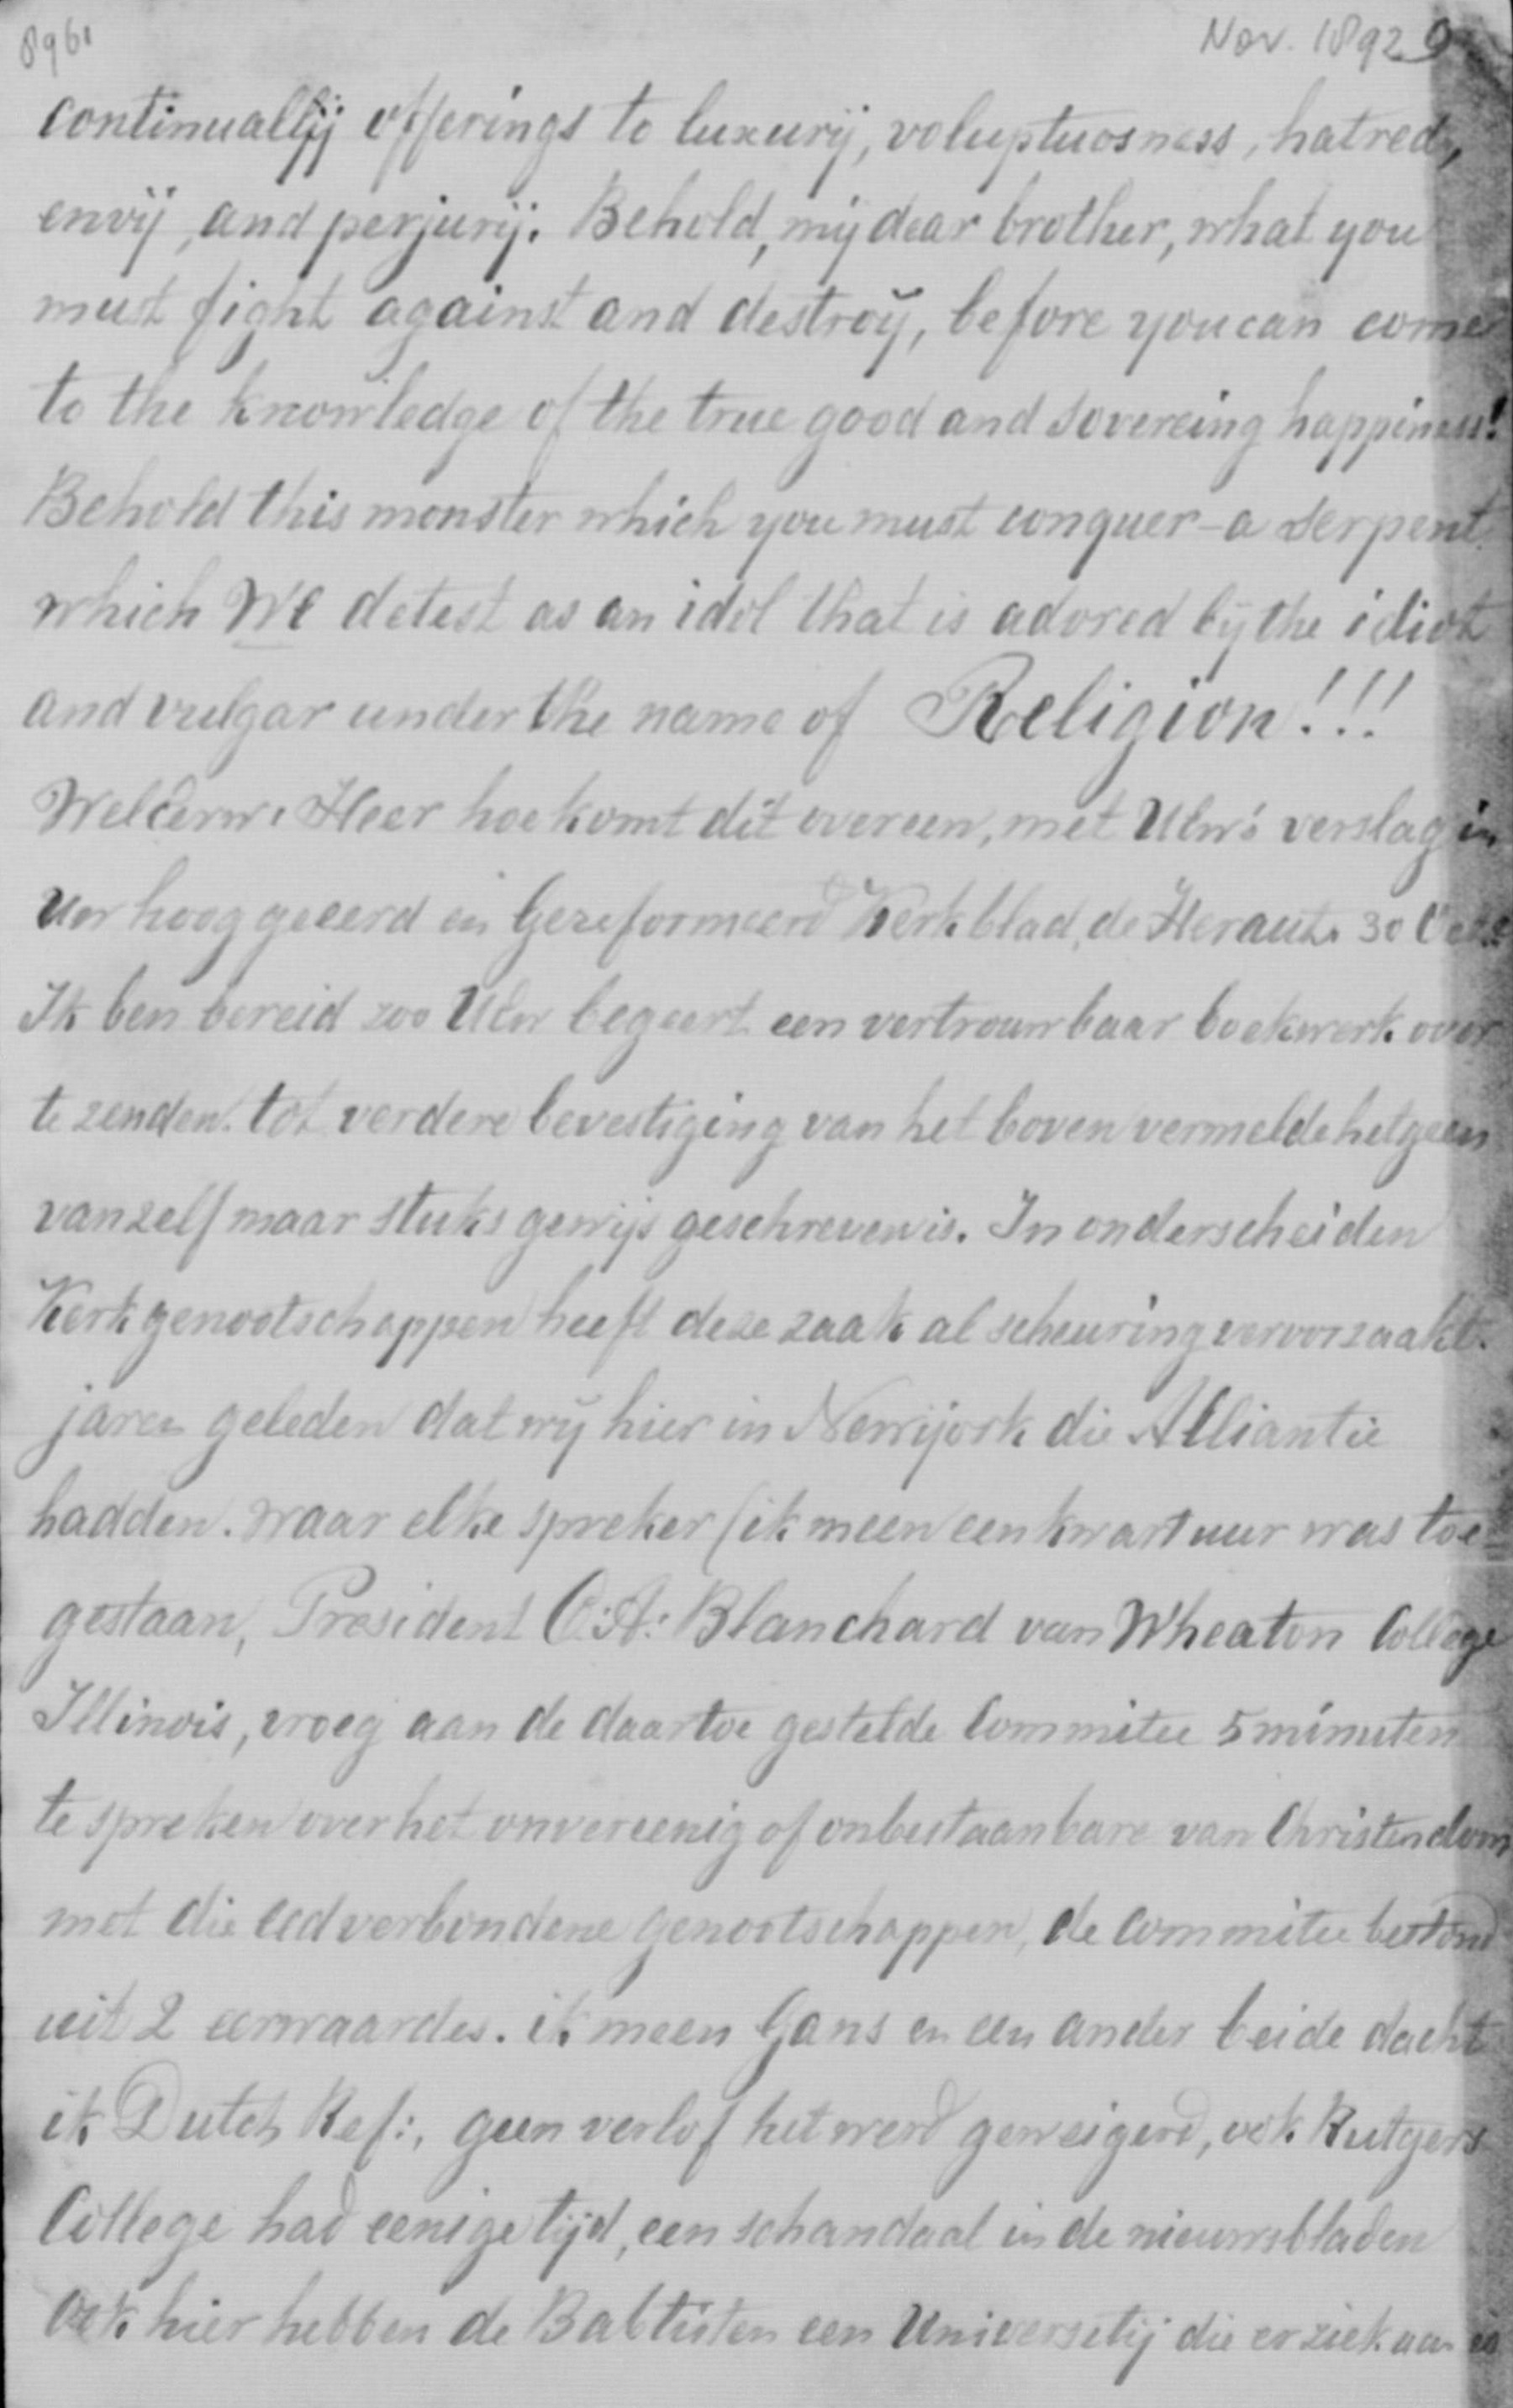 8961
Nov. 1892 9
continuallij offerings to luxurij, voluptuosness, hatred,
envij, and perjurij. Behold, mij dear brother, what you
must fight against and destroij, before you can come
to the knowledge of the true good and sovereing happiness!
Behold this monster which you must conquer - a serpent
which We detest as an idol that is adored bij the idiot
and vulgar under the name of Religion!!!
WelEerw. Heer hoe komt dit overeen, met UEw's verslag in
Uw hooggeeerd en Gereformeerd Kerkblad, de Heraut. 30 Oct.
Ik ben bereid zoo UEw begeert een vertrouwbaar boekwerk over
te zenden. tot verdere bevestiging van het boven vermelde hetgeen
vanzelf maar stuksgewijs geschreven is. In onderscheiden
Kerkgenootschappen heeft deze zaak al scheuring veroorzaakt.
jaren geleden dat wij hier in Newijork die Alliantie
hadden. waar elke spreker (ik meen een kwart uur was toe=
gestaan, President C:A: Blanchard van Wheaton College
Illinois, vroeg aan de daartoe gestelde Commitee 5 minuten
te spreken over het onvereenig of onbestaanbare van Christendom
met die eedverbondene genootschappen, de Commitee bestond
uit 2 eerwaardes. ik meen Gans en een ander beide dacht
ik Dutch Ref:, geen verlof het werd geweigerd, ook Rutgers
College had eenige tijd, een schandaal in de nieuwsbladen
Ook hier hebben de Babtisten een Universitij die er ziek aan is